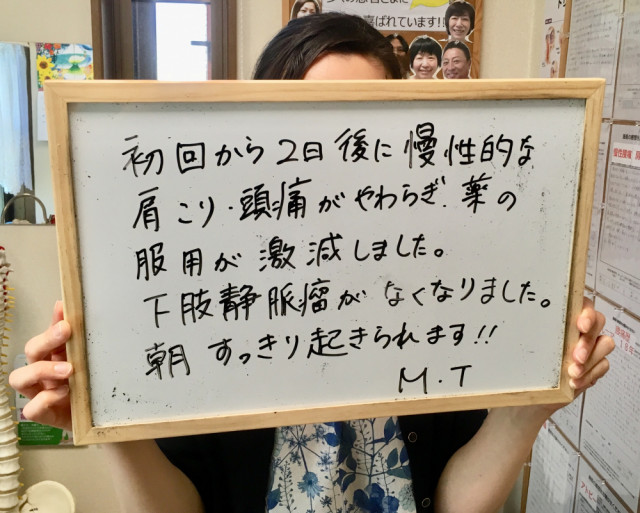 喜ばれています!!
初回から2日後に慢性的な
肩こり・頭痛がやわらぎ、薬の
服用が激減しました。
下肢静脈瘤がなくなりました。
朝すっきり起きられます!!
M.T